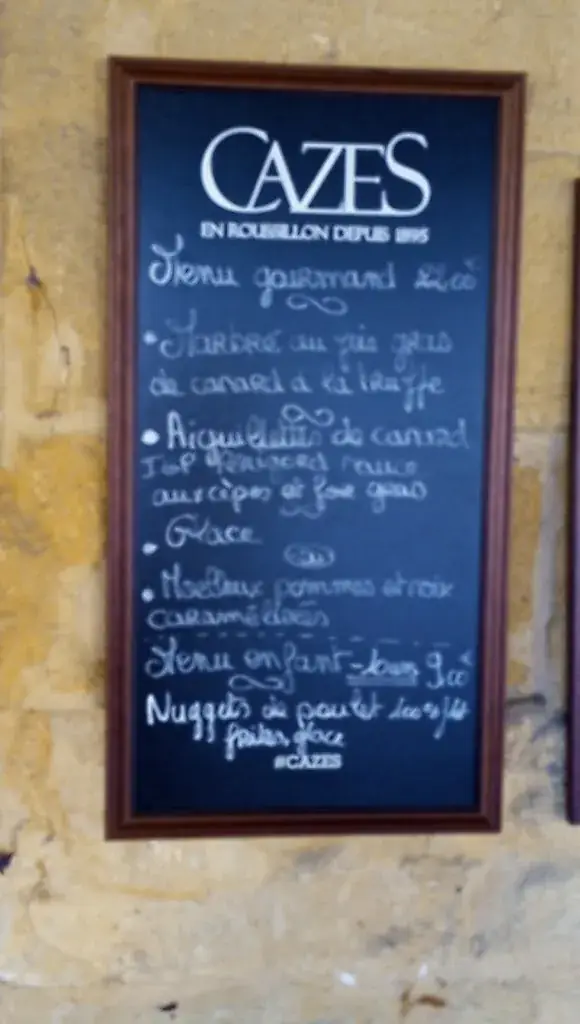 CAZES
EN ROUSSILLON DEPUIS 1895
Menu gourmand 22,00€
• Marbré au foie gras
de canard à la truffe
• Aiguillettes de canard
IGP Périgord sauce
aux cèpes et foie gras
• Glace
ou
• Moelleux pommes et noix
caramélisées
Menu enfant - 9,00€
Nuggets de poulet
frites, glace
#CAZES